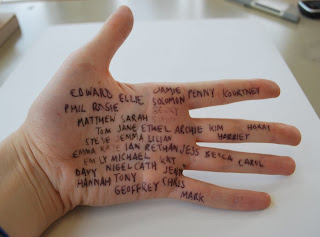 EDWARD ELLIE JAMIE PENNY KOURTNEY
PHIL ROSIE SOLOMON
MATTHEW SARAH
TOM JANE ETHEL ARCHIE KIM HARRY
STEVE EMMA LILIAN HARRIET
EMMA KATE IAN RETHAN JESS BECCA CAROL
EMILY MICHAEL KAT
DAVY NIGEL CATH JENN
HANNAH TONY CHRIS
GEOFFREY MARK